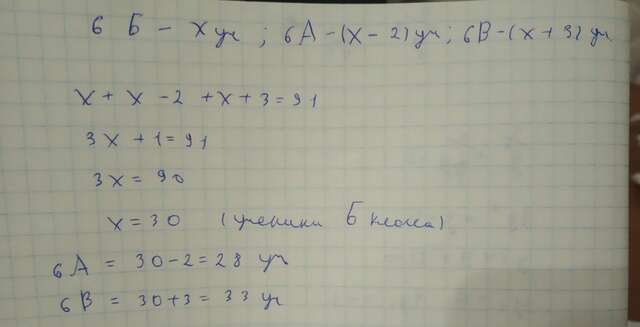 6 Б - х уч ; 6А - (х - 2) уч ; 6В - (х + 3) уч
х + х - 2 + х + 3 = 91
3х + 1 = 91
3х = 90
х = 30 (ученики Б класса)
6А = 30 - 2 = 28 уч
6В = 30 + 3 = 33 уч